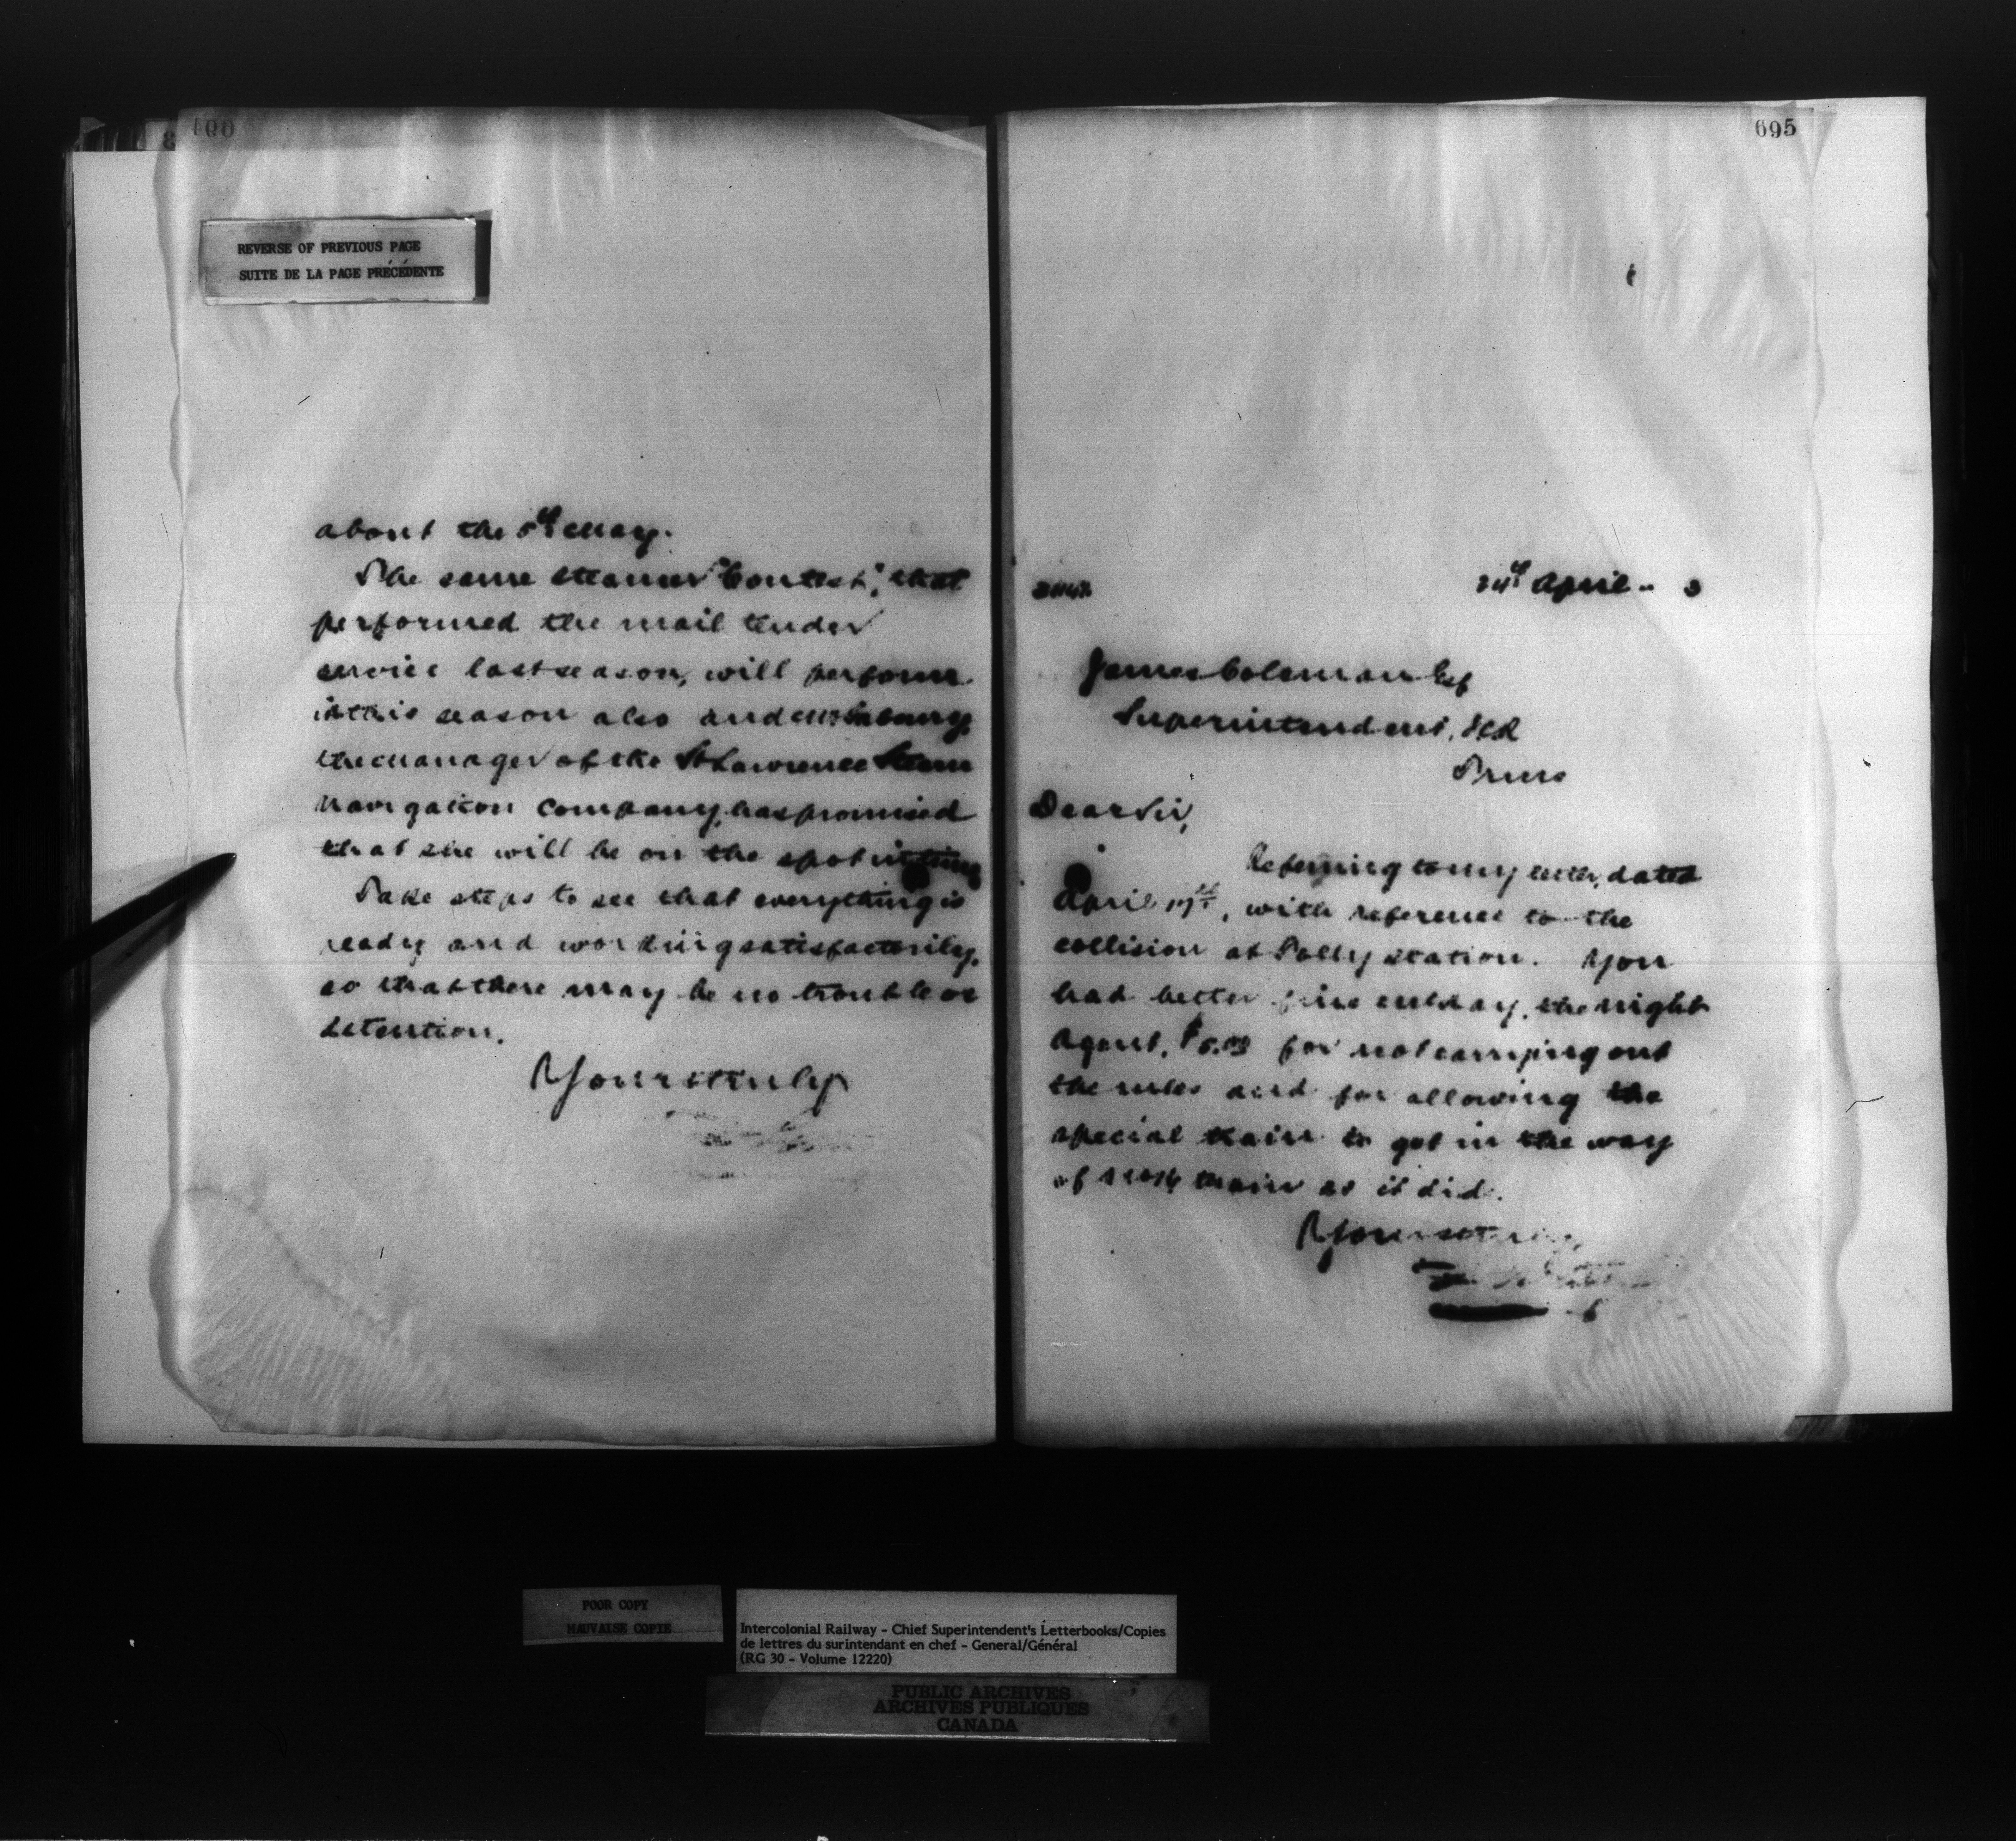 REVERSE OF PREVIOUS PAGE
SUITE DE LA PAGE PRÉCÉDENTE
about the 5th May.
The same steamer "Contest", that
performed the mail tender
service last season, will perform
it this season also and
the manager of the St Lawrence Steam
Navigation Company, has promised
that she will be on the spot in time
Take steps to see that everything is
ready and working satisfactorily,
so that there may be no trouble or
detention.
Yours truly
695
24th April 3
James Coleman Esq
Superintendent, ICR
Truro
Dear Sir,
Referring to my letter, dated
April 17th, with reference to the
collision at Polly station. You
had better fine, the night
Agent, $5.00 for not carrying out
the rules and for allowing the
special train to get in the way
of train as it did.
Yours truly
POOR COPY
MAUVAISE COPIE
Intercolonial Railway - Chief Superintendent's Letterbooks/Copies
de lettres du surintendant en chef - General/Général
(RG 30 - Volume 12220)
PUBLIC ARCHIVES
ARCHIVES PUBLIQUES
CANADA